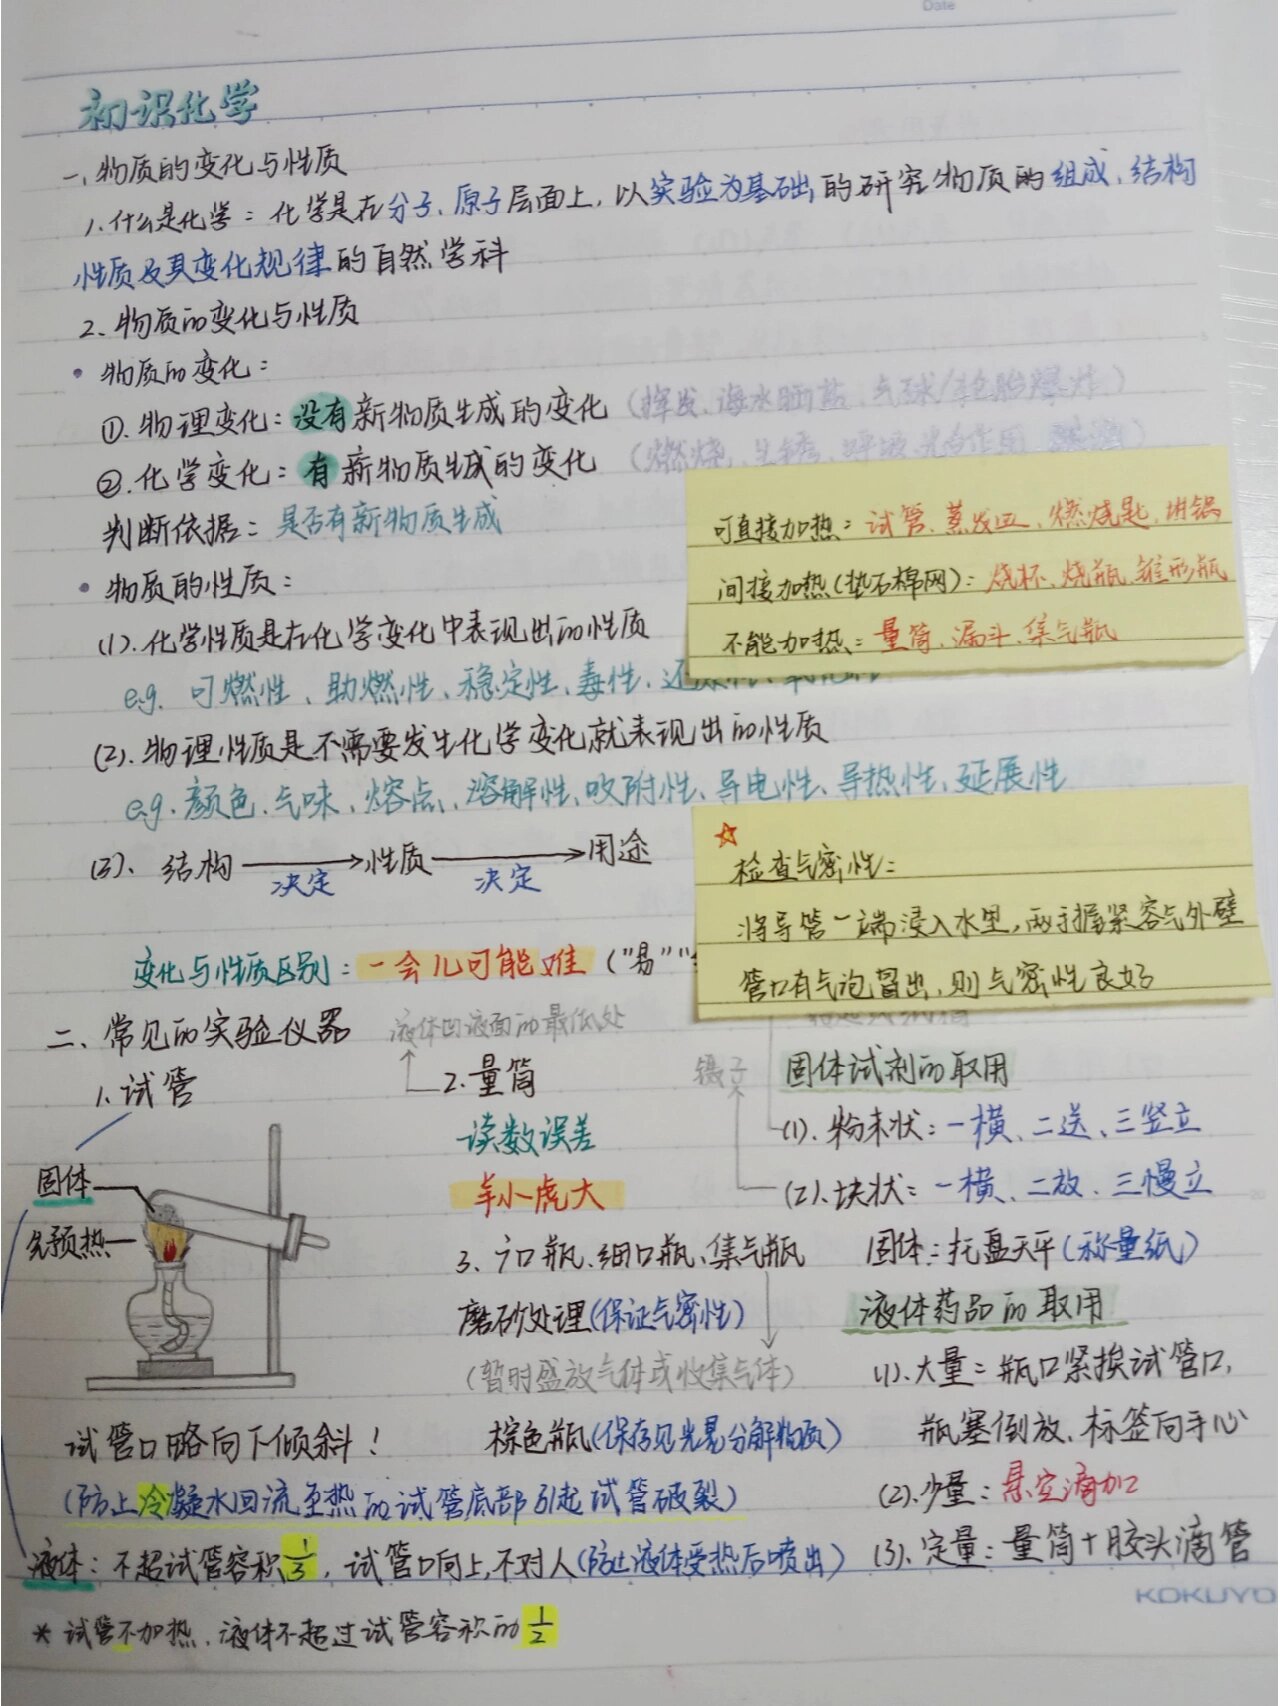 Date
初识化学
一、物质的变化与性质
1. 什么是化学：化学是在分子、原子层面上，以实验为基础的研究物质的组成、结构
性质及其变化规律的自然学科
2、物质的变化与性质
• 物质的变化：
①. 物理变化：没有新物质生成的变化（挥发、海水晒盐、气球/轮胎爆炸）
②. 化学变化：有新物质生成的变化（燃烧、生锈、呼吸、光合作用
判断依据：是否有新物质生成
• 物质的性质：
(1). 化学性质是在化学变化中表现出的性质
e.g. 可燃性、助燃性、稳定性、毒性、
(2). 物理性质是不需要发生化学变化就表现出的性质
e.g. 颜色、气味、熔点、溶解性、吸附性、导电性、导热性、延展性
(3)、结构 → 性质 → 用途
决定 决定
变化与性质区别：一会儿可能难（"易"
可直接加热：试管、蒸发皿、燃烧匙、坩锅
间接加热（垫石棉网）：烧杯、烧瓶、锥形瓶
不能加热：量筒、漏斗、集气瓶
☆
检查气密性：
将导管一端浸入水里，两手握紧容气外壁
管口有气泡冒出，则气密性良好
二、常见的实验仪器
1. 试管
固体
先预热
试管口略向下倾斜！
（防止冷凝水回流至热的试管底部引起试管破裂）
液体：不超试管容积1/3，试管口向上，不对人（防止液体受热后喷出）
* 试管不加热，液体不超过试管容积的1/2
液体凹液面的最低处
2. 量筒
读数误差
羊小虎大
3、广口瓶、细口瓶、集气瓶
磨砂处理（保证气密性）
（暂时盛放气体或收集气体）
棕色瓶（保存见光易分解物质）
镊子
固体试剂的取用
(1). 粉末状：一横、二送、三竖立
(2). 块状：一横、二放、三慢立
固体：托盘天平（称量纸）
液体药品的取用
(1). 大量：瓶口紧挨试管口，
瓶塞倒放，标签向手心
(2). 少量：悬空滴加
(3). 定量：量筒+胶头滴管
KOKUYO